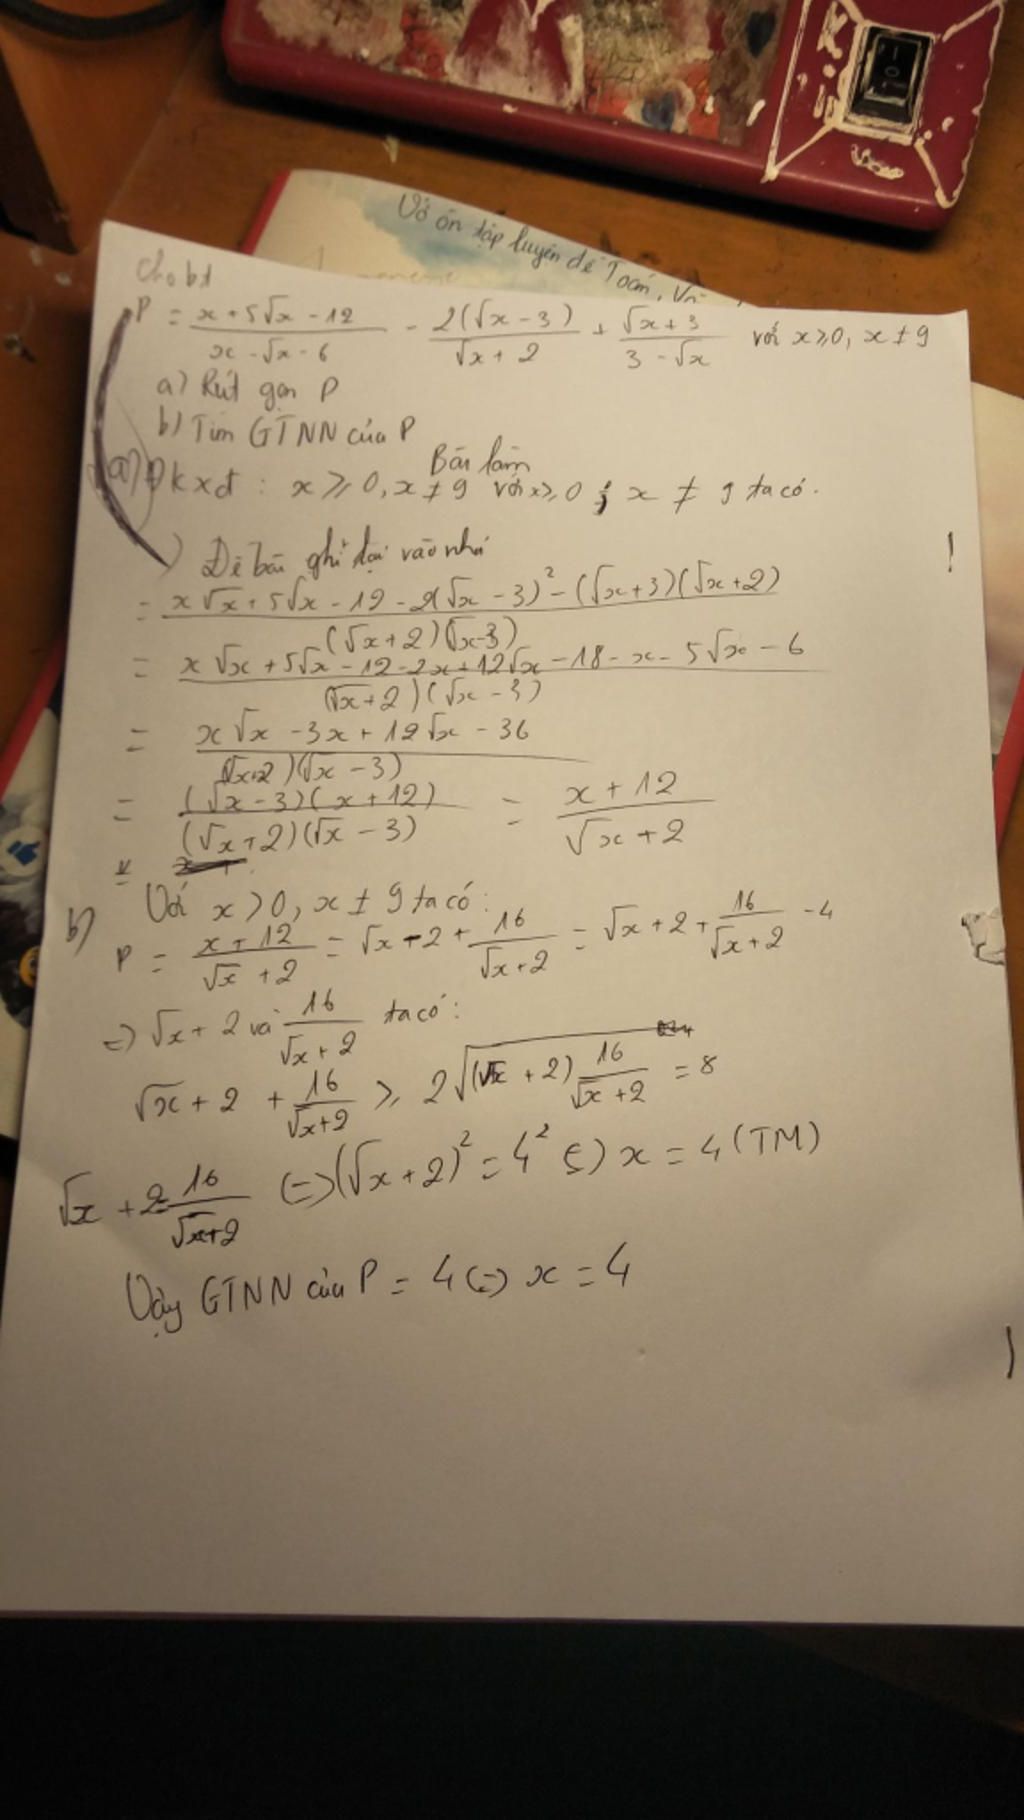 Vở ôn tập luyện đề Toán, Vă
Cho bt
P = \frac{x + 5√x - 12}{x - √x - 6} - \frac{2(√x - 3)}{√x + 2} + \frac{√x + 3}{3 - √x} với x ≥ 0, x ≠ 9
a) Rút gọn P
b) Tìm GTNN của P
Bài làm
a) Đkxđ : x ≥ 0, x ≠ 9 với x ≥ 0 ; x ≠ 9 ta có.
) Đề bài ghi lại vào nhá
= \frac{x√x + 5√x - 12 - 2(√x - 3)² - (√x + 3)(√x + 2)}{(√x + 2)(√x - 3)}
= \frac{x√x + 5√x - 12 - 2x + 12√x - 18 - x - 5√x - 6}{(√x + 2)(√x - 3)}
= \frac{x√x - 3x + 12√x - 36}{(√x + 2)(√x - 3)}
= \frac{(√x - 3)(x + 12)}{(√x + 2)(√x - 3)} = \frac{x + 12}{√x + 2}
b) Với x > 0, x ≠ 9 ta có :
P = \frac{x + 12}{√x + 2} = √x - 2 + \frac{16}{√x + 2} = √x + 2 + \frac{16}{√x + 2} - 4
=) √x + 2 và \frac{16}{√x + 2} ta có :
√x + 2 + \frac{16}{√x + 2} ≥ 2√{(√x + 2) \frac{16}{√x + 2}} = 8
√x + 2 = \frac{16}{√x + 2} (=) (√x + 2)² = 4² (=) x = 4 (TM)
Vậy GTNN của P = 4 (=) x = 4